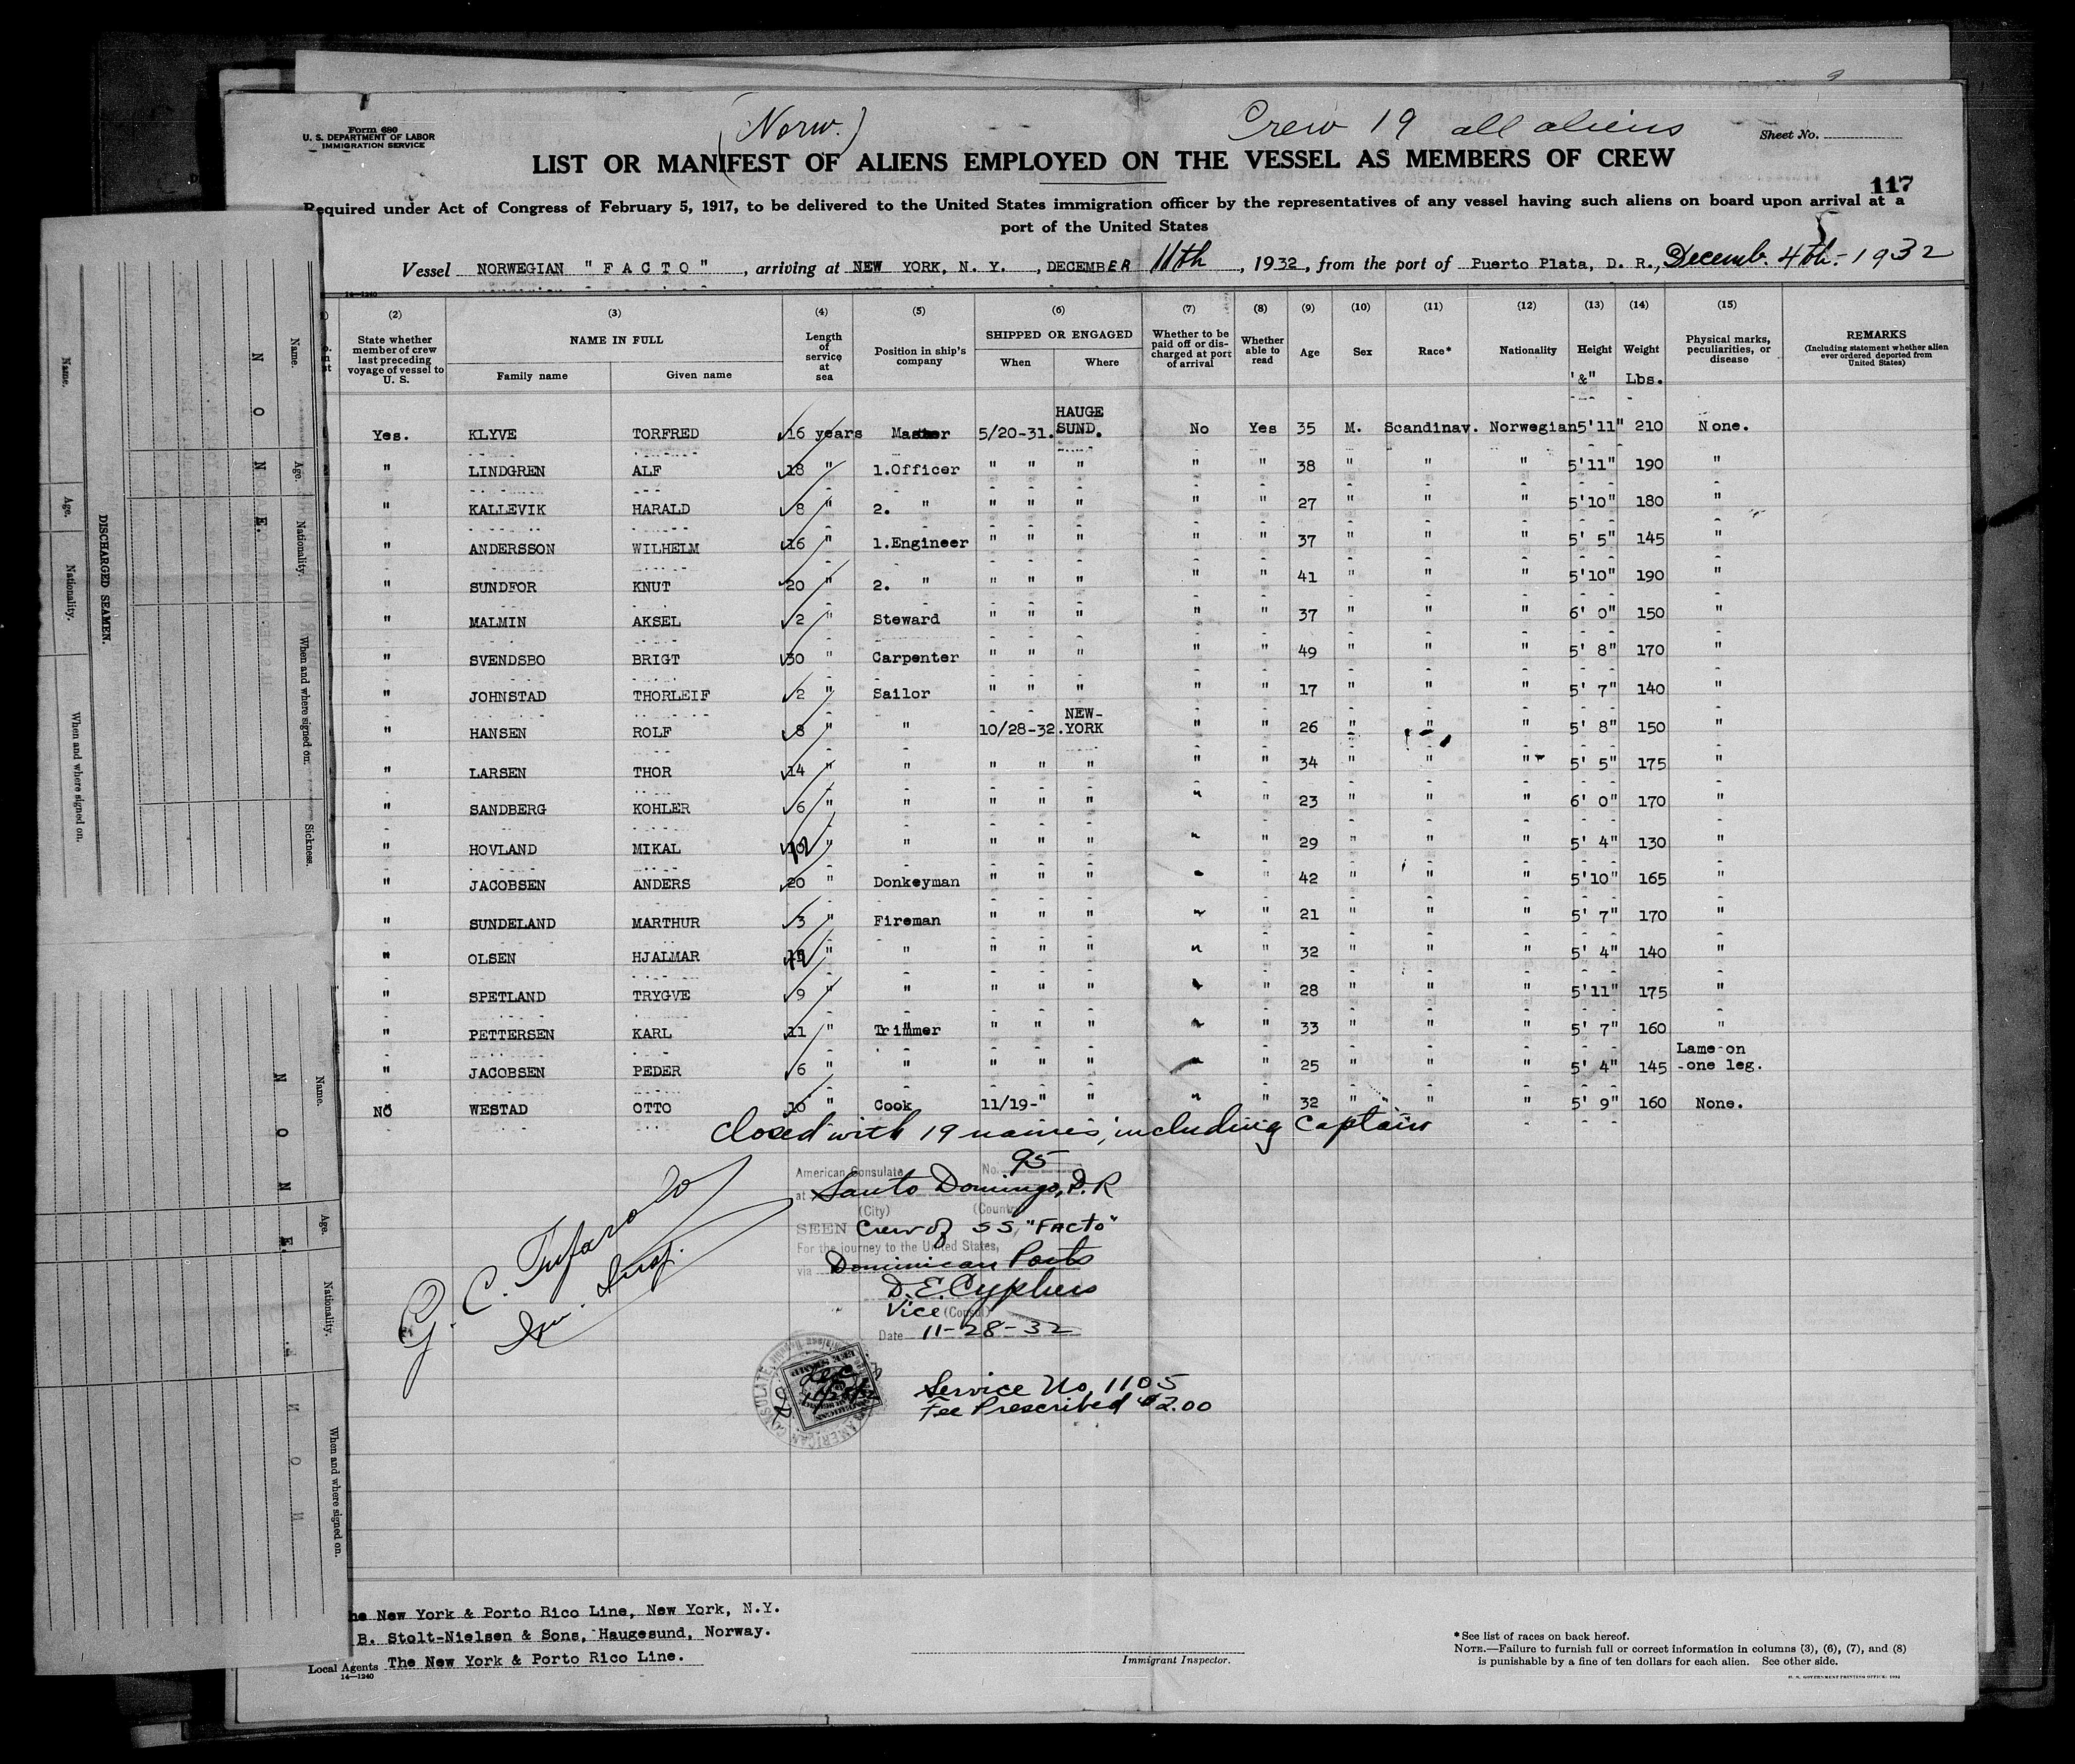 Form 680
U. S. DEPARTMENT OF LABOR
IMMIGRATION SERVICE
(Norw.)
Crew 19 all aliens
Sheet No.
LIST OR MANIFEST OF ALIENS EMPLOYED ON THE VESSEL AS MEMBERS OF CREW
117
Required under Act of Congress of February 5, 1917, to be delivered to the United States immigration officer by the representatives of any vessel having such aliens on board upon arrival at a
port of the United States
Vessel NORWEGIAN "FACTO", arriving at NEW YORK, N. Y., DECEMBER 11th, 1932, from the port of Puerto Plata, D. R., Decemb. 4th - 1932
14—1240
(2) (3) (4) (5) (6) (7) (8) (9) (10) (11) (12) (13) (14) (15)
State whether member of crew last preceding voyage of vessel to U. S. | NAME IN FULL | Family name | Given name | Length of service at sea | Position in ship's company | SHIPPED OR ENGAGED | When | Where | Whether to be paid off or discharged at port of arrival | Whether able to read | Age | Sex | Race* | Nationality | Height '&" | Weight Lbs. | Physical marks, peculiarities, or disease | REMARKS (Including statement whether alien ever ordered deported from United States)
Yes. KLYVE TORFRED 16 years Master 5/20-31. HAUGE SUND. No Yes 35 M. Scandinav. Norwegian 5'11" 210 None.
" LINDGREN ALF 18 " 1.Officer " " " " " 38 " " " 5'11" 190 "
" KALLEVIK HARALD 8 " 2. " " " " " " 27 " " " 5'10" 180 "
" ANDERSSON WILHELM 16 " 1.Engineer " " " " " 37 " " " 5' 5" 145 "
" SUNDFOR KNUT 20 " 2. " " " " " " 41 " " " 5'10" 190 "
" MALMIN AKSEL 2 " Steward " " " " " 37 " " " 6' 0" 150 "
" SVENDSBO BRIGT 30 " Carpenter " " " " " 49 " " " 5' 8" 170 "
" JOHNSTAD THORLEIF 2 " Sailor " " " " " 17 " " " 5' 7" 140 "
" HANSEN ROLF 8 " " 10/28-32. NEW-YORK " " 26 " " " 5' 8" 150 "
" LARSEN THOR 14 " " " " " " " 34 " " " 5' 5" 175 "
" SANDBERG KOHLER 6 " " " " " " " 23 " " " 6' 0" 170 "
" HOVLAND MIKAL 12 " " " " " " " 29 " " " 5' 4" 130 "
" JACOBSEN ANDERS 20 " Donkeyman " " " " " 42 " " " 5'10" 165 "
" SUNDELAND MARTHUR 3 " Fireman " " " " " 21 " " " 5' 7" 170 "
" OLSEN HJALMAR 12 " " " " " " " 32 " " " 5' 4" 140 "
" SPETLAND TRYGVE 9 " " " " " " " 28 " " " 5'11" 175 "
" PETTERSEN KARL 11 " Trimmer " " " " " 33 " " " 5' 7" 160 "
" JACOBSEN PEDER 6 " " " " " " " 25 " " " 5' 4" 145 Lame on one leg.
No WESTAD OTTO 10 " Cook 11/19-" " " " 32 " " " 5' 9" 160 None.
Closed with 19 names, including Captain
American Consulate No. 95
at Santo Domingo, D.R
(City) (Country)
SEEN Crew of SS, "Facto"
For the journey to the United States,
via Dominican Ports
D. E. Cyphers
Vice (Consul)
Date 11-28-32
G. C. Tufarolo
Im. Insp.
Service No 1105
Fee Prescribed $2.00
The New York & Porto Rico Line, New York, N.Y.
B. Stolt-Nielsen & Sons, Haugesund, Norway.
Local Agents The New York & Porto Rico Line.
14—1240
Immigrant Inspector.
*See list of races on back hereof.
NOTE.—Failure to furnish full or correct information in columns (3), (6), (7), and (8)
is punishable by a fine of ten dollars for each alien. See other side.
U. S. GOVERNMENT PRINTING OFFICE: 1932
DISCHARGED SEAMEN.
Name. Age. Nationality. When and where signed on.
Name. Age. Nationality. When and where signed on. Sickness.
N O N E.
Name. Age. Nationality. When and where signed on.
N O N E.